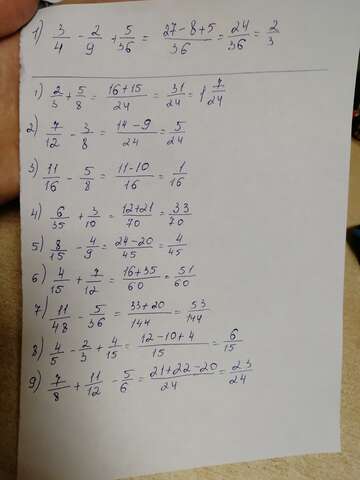 1) 3/4 - 2/9 + 5/36 = (27-8+5)/36 = 24/36 = 2/3
1) 2/3 + 5/8 = (16+15)/24 = 31/24 = 1 7/24
2) 7/12 - 3/8 = (14-9)/24 = 5/24
3) 11/16 - 5/8 = (11-10)/16 = 1/16
4) 6/35 + 3/10 = (12+21)/70 = 33/70
5) 8/15 - 4/9 = (24-20)/45 = 4/45
6) 4/15 + 7/12 = (16+35)/60 = 51/60
7) 11/48 - 5/36 = (33+20)/144 = 53/144
8) 4/5 - 2/3 + 4/15 = (12-10+4)/15 = 6/15
9) 7/8 + 11/12 - 5/6 = (21+22-20)/24 = 23/24